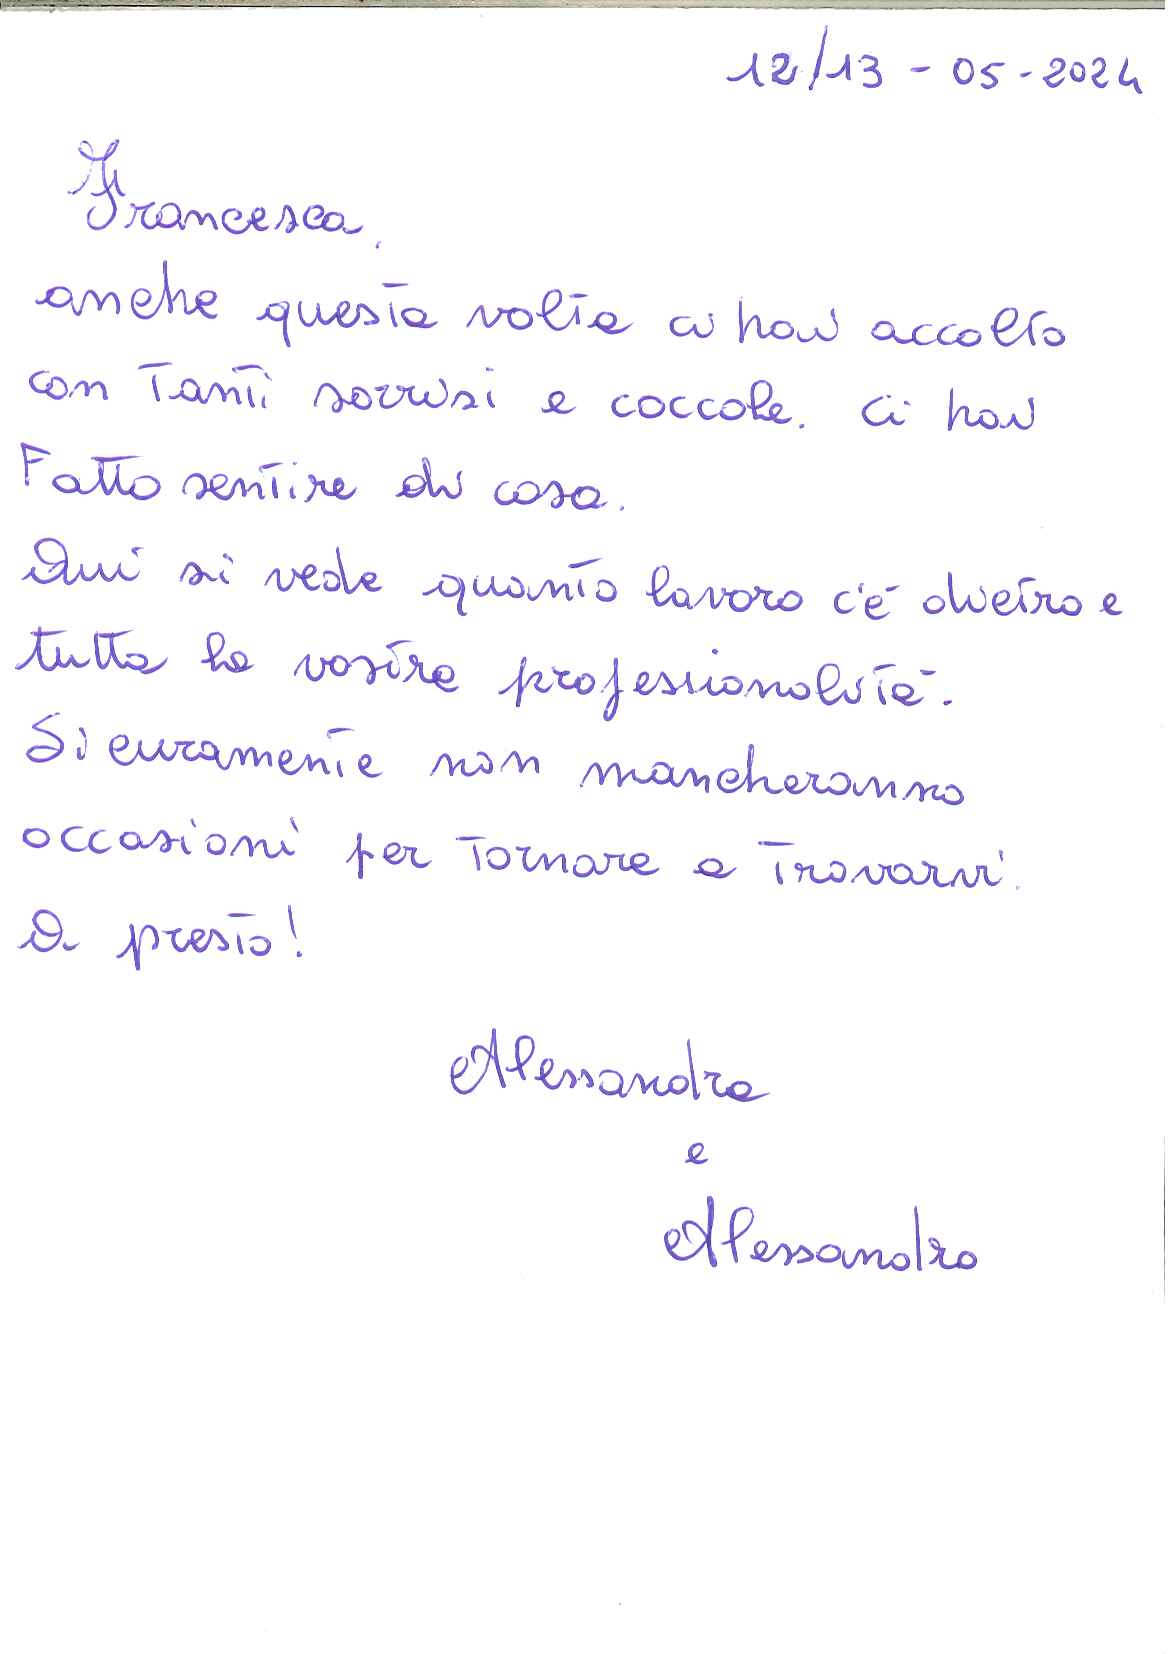 12/13 - 05 - 2024
Francesca,
anche questa volta ci hai accolto
con tanti sorrisi e coccole. Ci hai
Fatto sentire di casa.
Qui si vede quanto lavoro c'è dietro e
tutta la vostra professionalità.
Sicuramente non mancheranno
occasioni per tornare a trovarvi.
A presto!
Alessandra
e
Alessandro